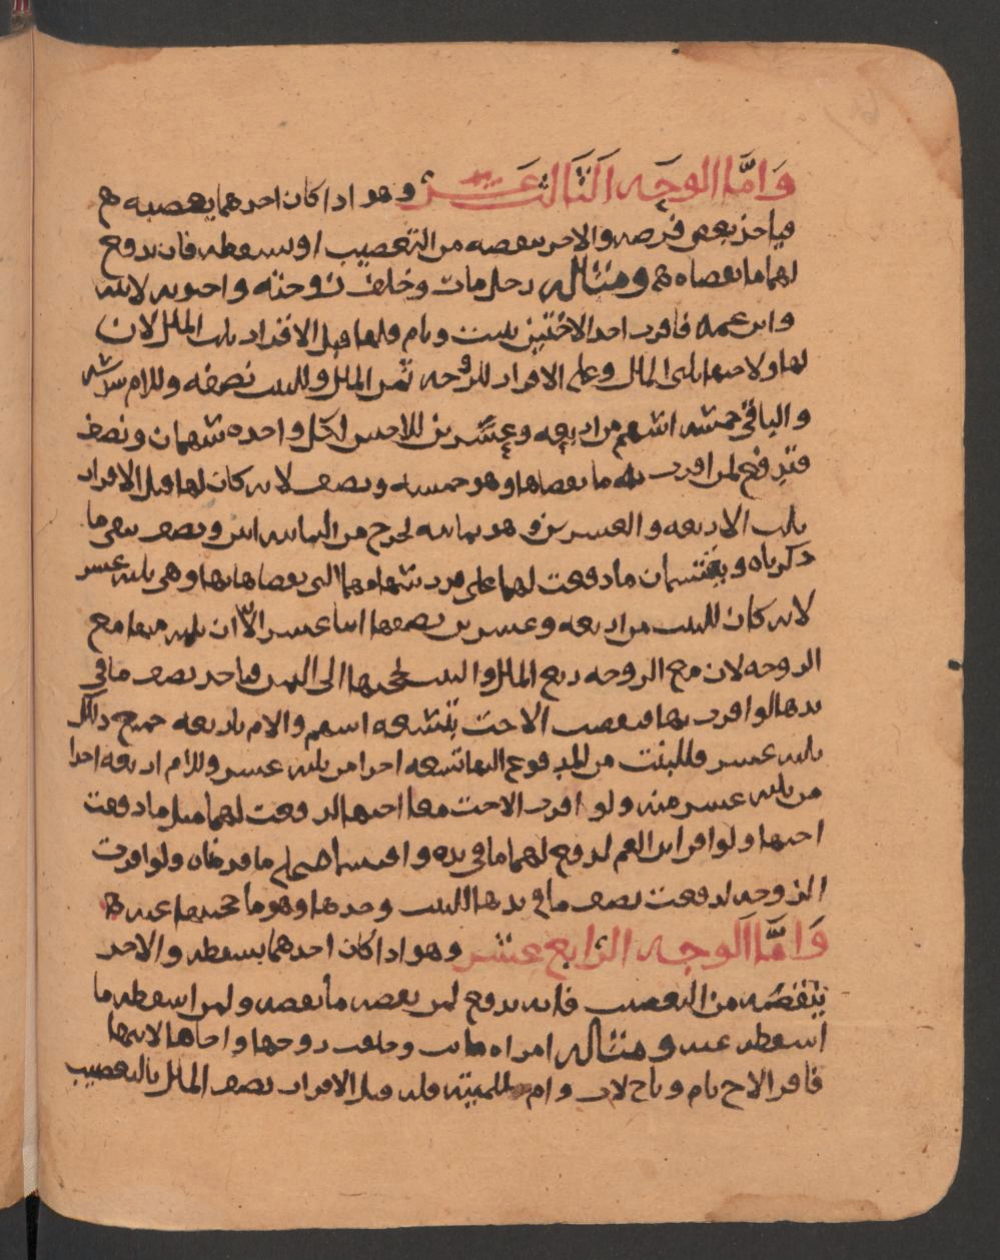 وَامَّا الوَجه الثالث عَشر وهو اذا كان احدهما يعصبه
فياخذ بعض فرضه والاخر ينقصه من التعصيب او يسقطه فان يدفع
لهما ما نقصاه ومثاله رجل مات وخلف زوجته واختيه لابيه
وابن عمه فاقرت احد الاختين ببنت وبام فلها قبل الاقرار ثلث المال لان
لها ولاختها ثلثى المال وعلى الاقرار للزوجه ثمن المال وللبنت نصفه وللام سدسه
والباقي خمسه اسهم من اربعه وعشرين للاختين لكل واحده سهمان ونصف
فتدفع لمن اقرت به ما نقصاها وهو خمسه ونصف لانه كان لها قبل الاقرار
ثلث الاربعه والعشرين وهو ثمانيه تخرج من الثمانيه اثنين ونصف يبقى ما
ذكرناه ويقتسمان ما دفعت لهما على قدر سهامهما التى نقصاها بها وهى ثلثه عشر
لانه كان للبنت من اربعه وعشرين نصفها اثنا عشر الا ان ثلثه منها مع
الزوجه لان مع الزوجه ربع المال والبنت تحجبها الى الثمن فياخذ نصف ما في
يدها لو اقرت بها فنقصت الاخت بتسعه اسهم والام باربعه جميع ذلك
ثلثه عشر فللبنت من المدفوع اليها تسعه اجزا من ثلثه عشر وللام اربعه اجزا
من ثلثه عشر منه ولو اقرت الاخت معها اختها لدفعت لهما مثل ما دفعت
اختها ولو اقر ابن العم لدفع لهما ما في يده واقتسما على ما قدمناه ولو اقرت
الزوجه لدفعت نصف ما في يدها للبنت وحدها وهو ما تحجبها عنه
وَامَّا الَوجه الرابع عشر وهو اذا كان احدهما يسقطه والاخر
ينقصه من التعصيب فانه يدفع لمن نقصه ما نقصه ولمن اسقطه ما
اسقطه عنه ومثاله امراه ماتت وخلفت زوجها واخاها لابيها
فاقر الاخ بام وباخ لاب وام للميته فله قبل الاقرار نصف المال بالتعصيب